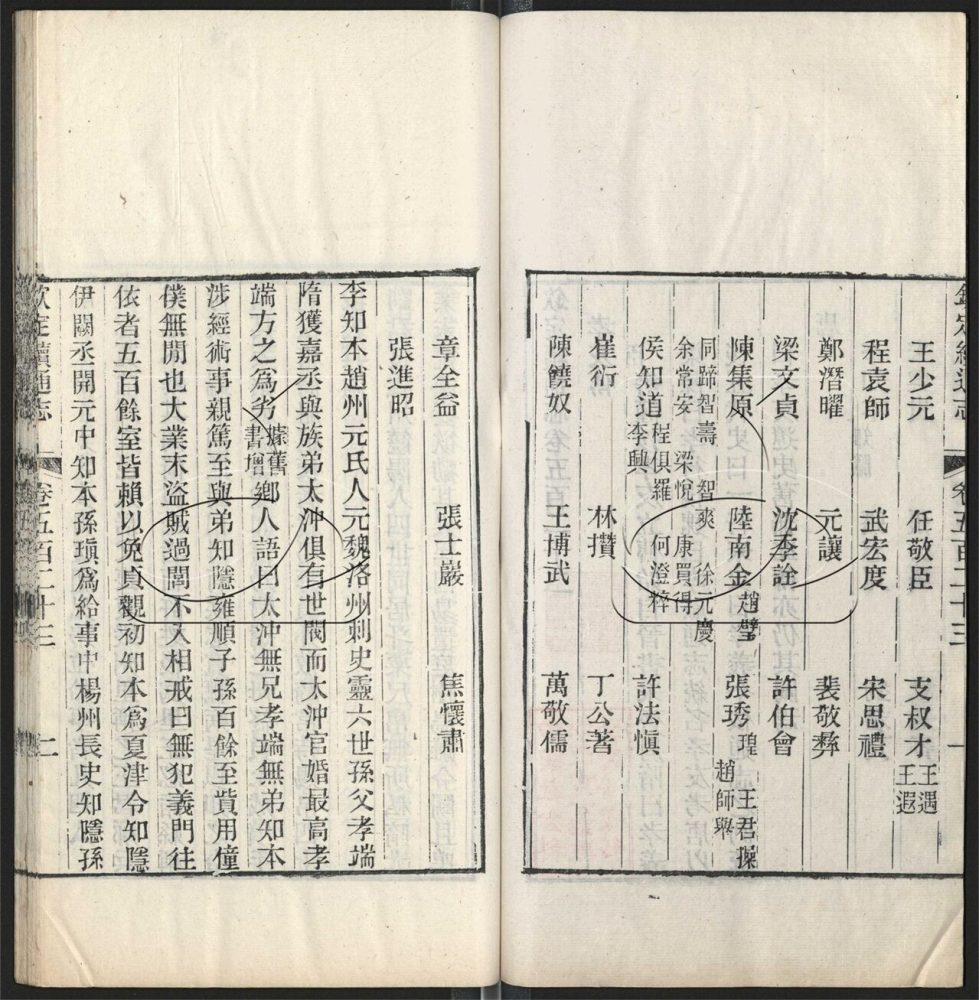 欽定續通志 卷五百二十三 一
王少元 任敬臣 支叔才 王遇 王遐
程袁師 武宏度 宋思禮
鄭潛曜 元讓 裴敬彝
梁文貞 沈季詮 許伯會
陳集原 陸南金 趙璧 張琇 瑝 王君操
同蹄智壽 智爽 徐元慶 趙師舉
余常安 梁悅 康買得
侯知道 程俱羅 何澄粹 許法愼
李興
崔衍 林攢 丁公著
陳饒奴 王博武 萬敬儒
章全益 張士巖 焦懷肅
張進昭
李知本趙州元氏人元魏洛州刺史靈六世孫父孝端
隋獲嘉丞與族弟太沖俱有世閥而太沖官婚最高孝
端方之爲劣據舊書增鄉人語曰太沖無兄孝端無弟知本
涉經術事親篤至與弟知隱雍順子孫百餘至貲用僮
僕無閒也大業末盜賊過閭不入相戒曰無犯義門往
依者五百餘室皆賴以免貞觀初知本爲夏津令知隱
伊闕丞開元中知本孫瑱爲給事中楊州長史知隱孫
欽定續通志 卷五百二十三 二